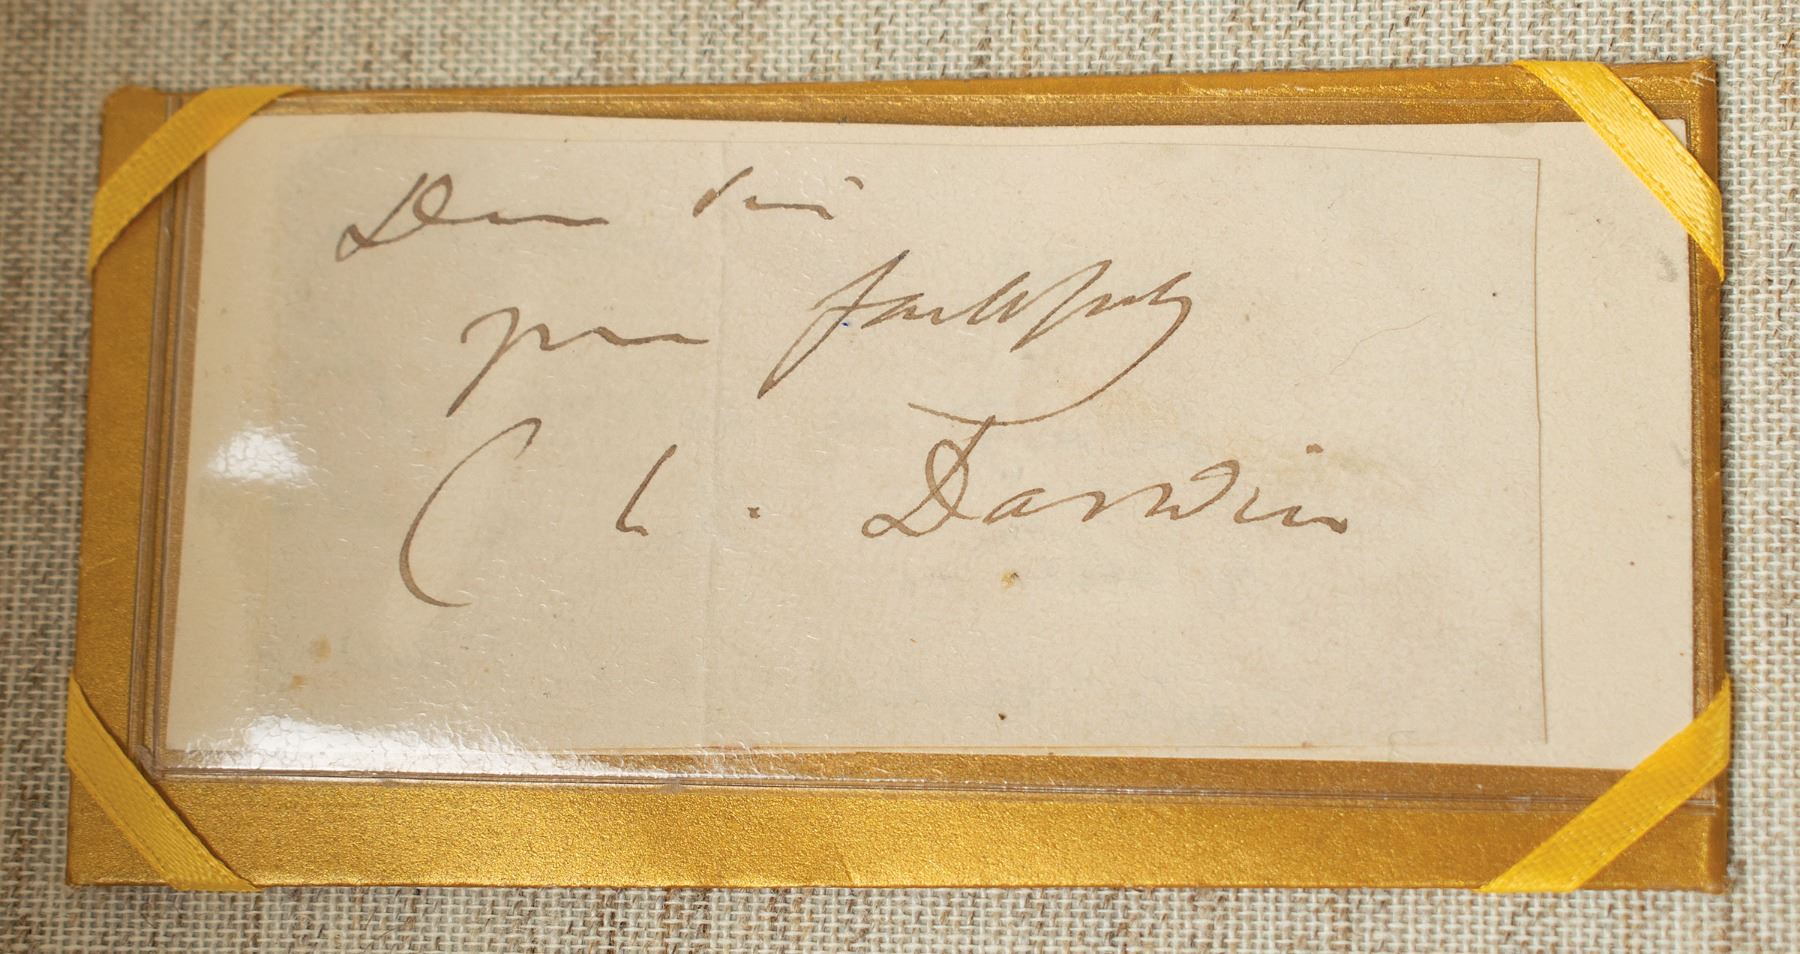 Dear Sir
yours faithfully
Ch. Darwin